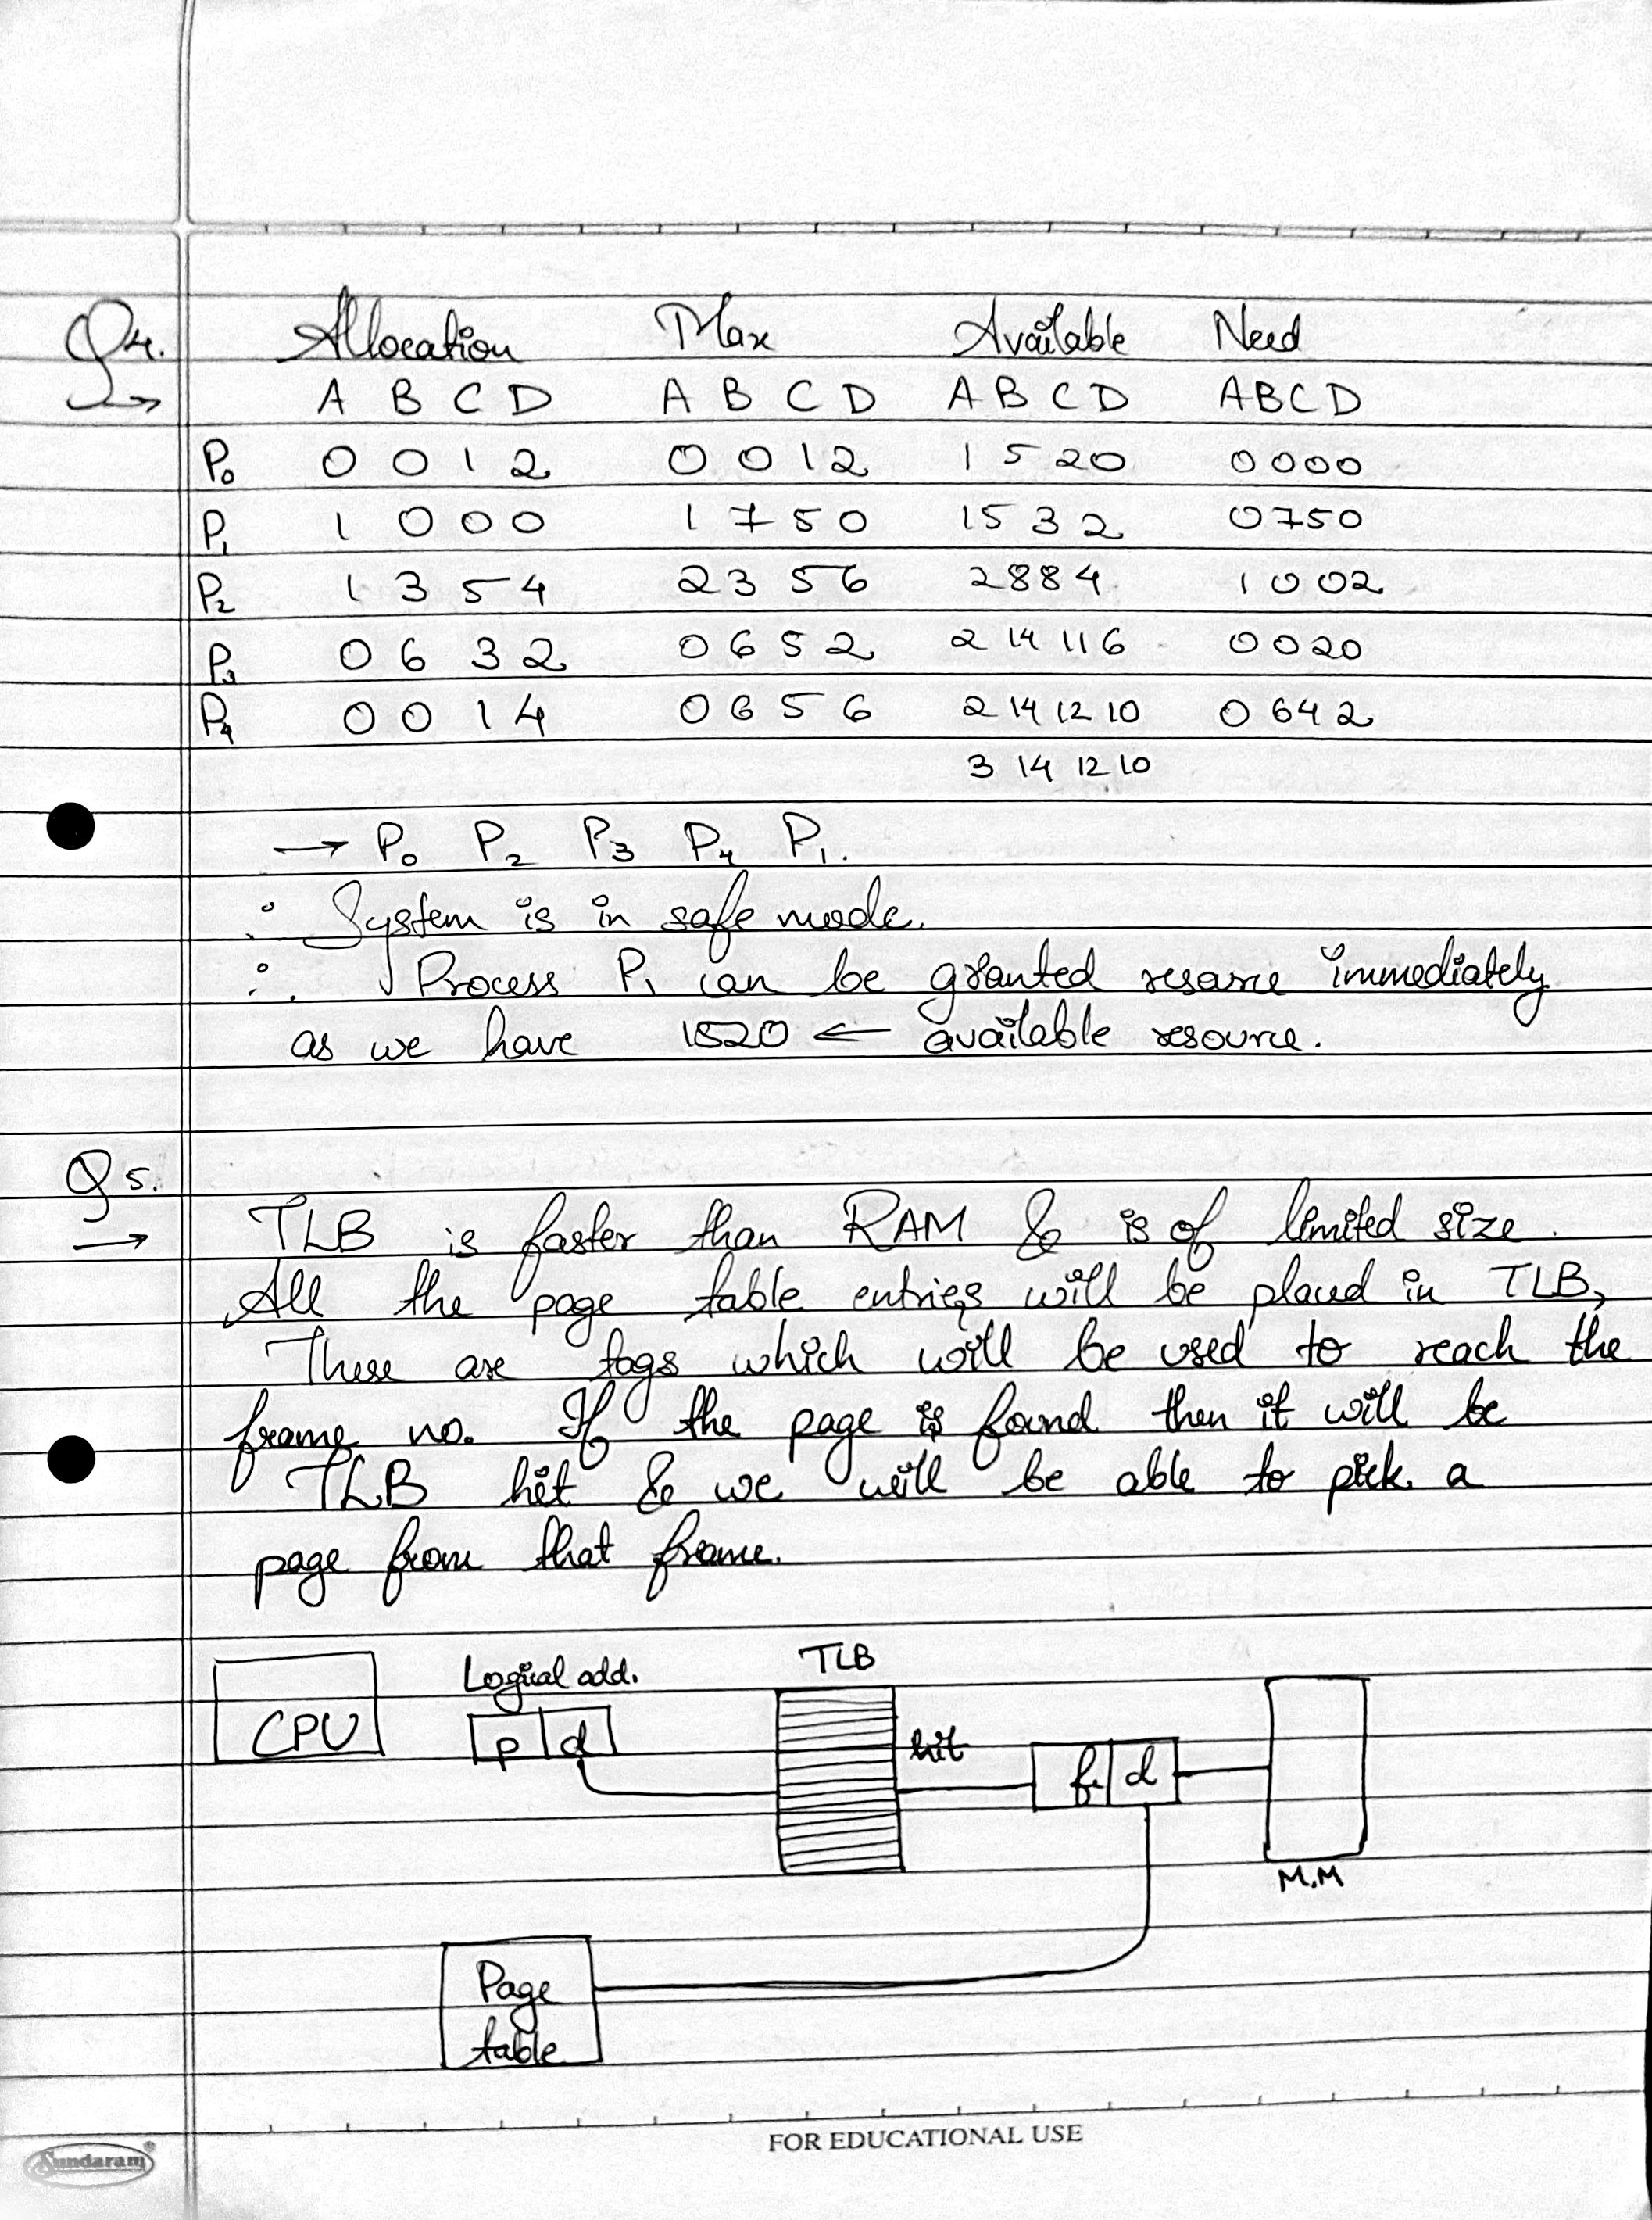 Q4. Allocation Max Available Need
→ A B C D A B C D A B C D A B C D
P₀ 0 0 1 2 0 0 1 2 1 5 2 0 0 0 0 0
P₁ 1 0 0 0 1 7 5 0 1 5 3 2 0 7 5 0
P₂ 1 3 5 4 2 3 5 6 2 8 8 4 1 0 0 2
P₃ 0 6 3 2 0 6 5 2 2 14 11 6 0 0 2 0
P₄ 0 0 1 4 0 6 5 6 2 14 12 10 0 6 4 2
3 14 12 10
→ P₀ P₂ P₃ P₄ P₁.
∴ System is in safe mode.
∴ Process P₁ can be granted resource immediately
as we have 1520 ← available resource.
Q5.
→ TLB is faster than RAM & is of limited size.
All the page table entries will be placed in TLB,
These are tags which will be used to reach the
frame no. If the page is found then it will be
TLB hit & we will be able to pick a
page from that frame.
TLB
Logical add.
CPU p d hit f d
M.M
Page
table
FOR EDUCATIONAL USE
Sundaram